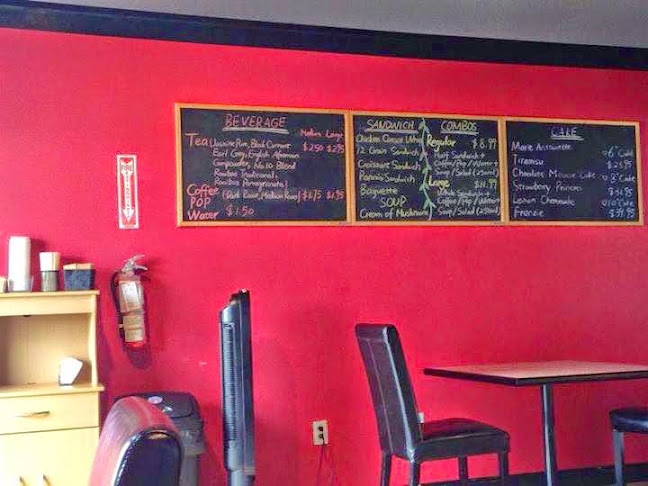 BEVERAGE
Medium Large
Tea Jasmine Pure, Black Currant $2.50 $2.95
Earl Grey, English Afternoon
Gunpowder, No.10 Blend
Rooibos Traditional,
Rooibos Pomegranate)
Coffee (Dark Roast, Medium Roast) $1.75 $1.95
POP
Water $1.50
SANDWICH
Chicken Caesar Wrap
12 Grain Sandwich
Croissant Sandwich
Panini Sandwich
Baguette
SOUP
Cream of Mushroom
COMBOS
Regular $8.99
Half Sandwich +
Coffee/Pop/Water +
Soup/Salad (250ml)
Large $11.99
Whole Sandwich +
Coffee/Pop/Water +
Soup/Salad
CAKE
Marie Antoinette
Tiramisu
Chocolate Mousse Cake
Strawberry
Lemon
Frenzie
6" Cake
8" Cake
10" Cake
$39.95